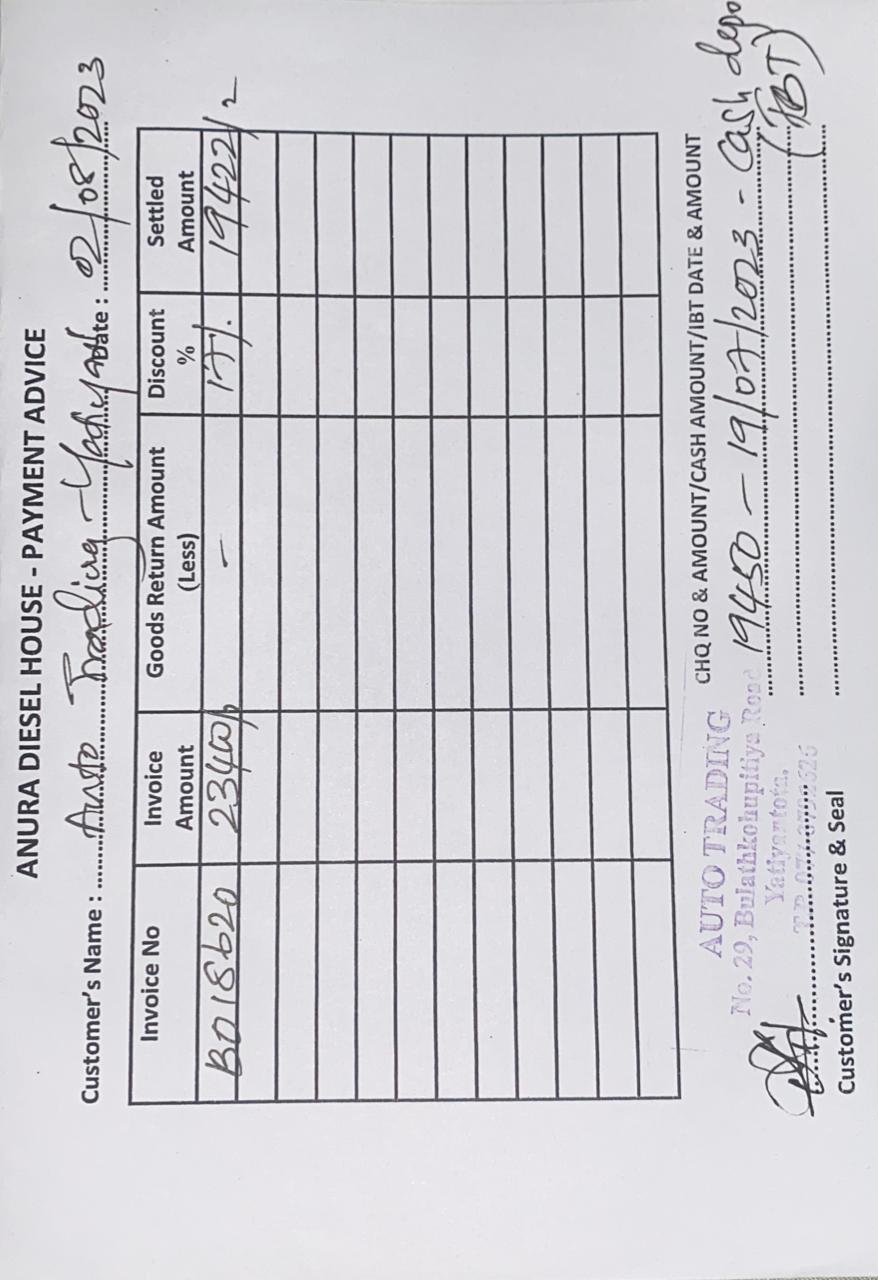 ANURA DIESEL HOUSE - PAYMENT ADVICE
Customer's Name : Auto Trading - Date : 02/08/2023
Invoice No Invoice Amount Goods Return Amount (Less) Discount % Settled Amount
B018620 23400/- - 17% 19422/2
CHQ NO & AMOUNT/CASH AMOUNT/IBT DATE & AMOUNT
19450 - 19/07/2023 - Cash depo
(IBT)
AUTO TRADING
No. 29, Bulathkohupitiya Road
Yatiyantota.
Customer's Signature & Seal